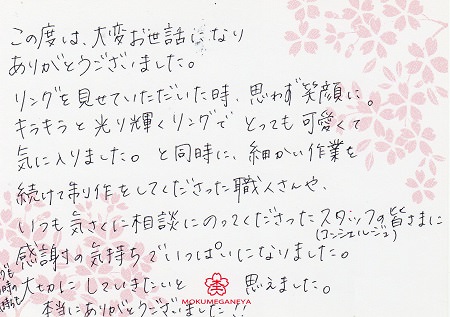 この度は、大変お世話になり
ありがとうございました。
リングを見せていただいた時、思わず笑顔に。
キラキラと光り輝くリングで とっても可愛くて
気に入りました。と同時に、細かい作業を
続けて制作をしてくださった職人さんや、
いつも気さくに相談にのってくださったスタッフの皆さまに
(コンシェルジュ)
感謝の気持ちでいっぱいになりました。
大切にしていきたいと 思えました。
MOKUMEGANEYA
本当にありがとうございました!!